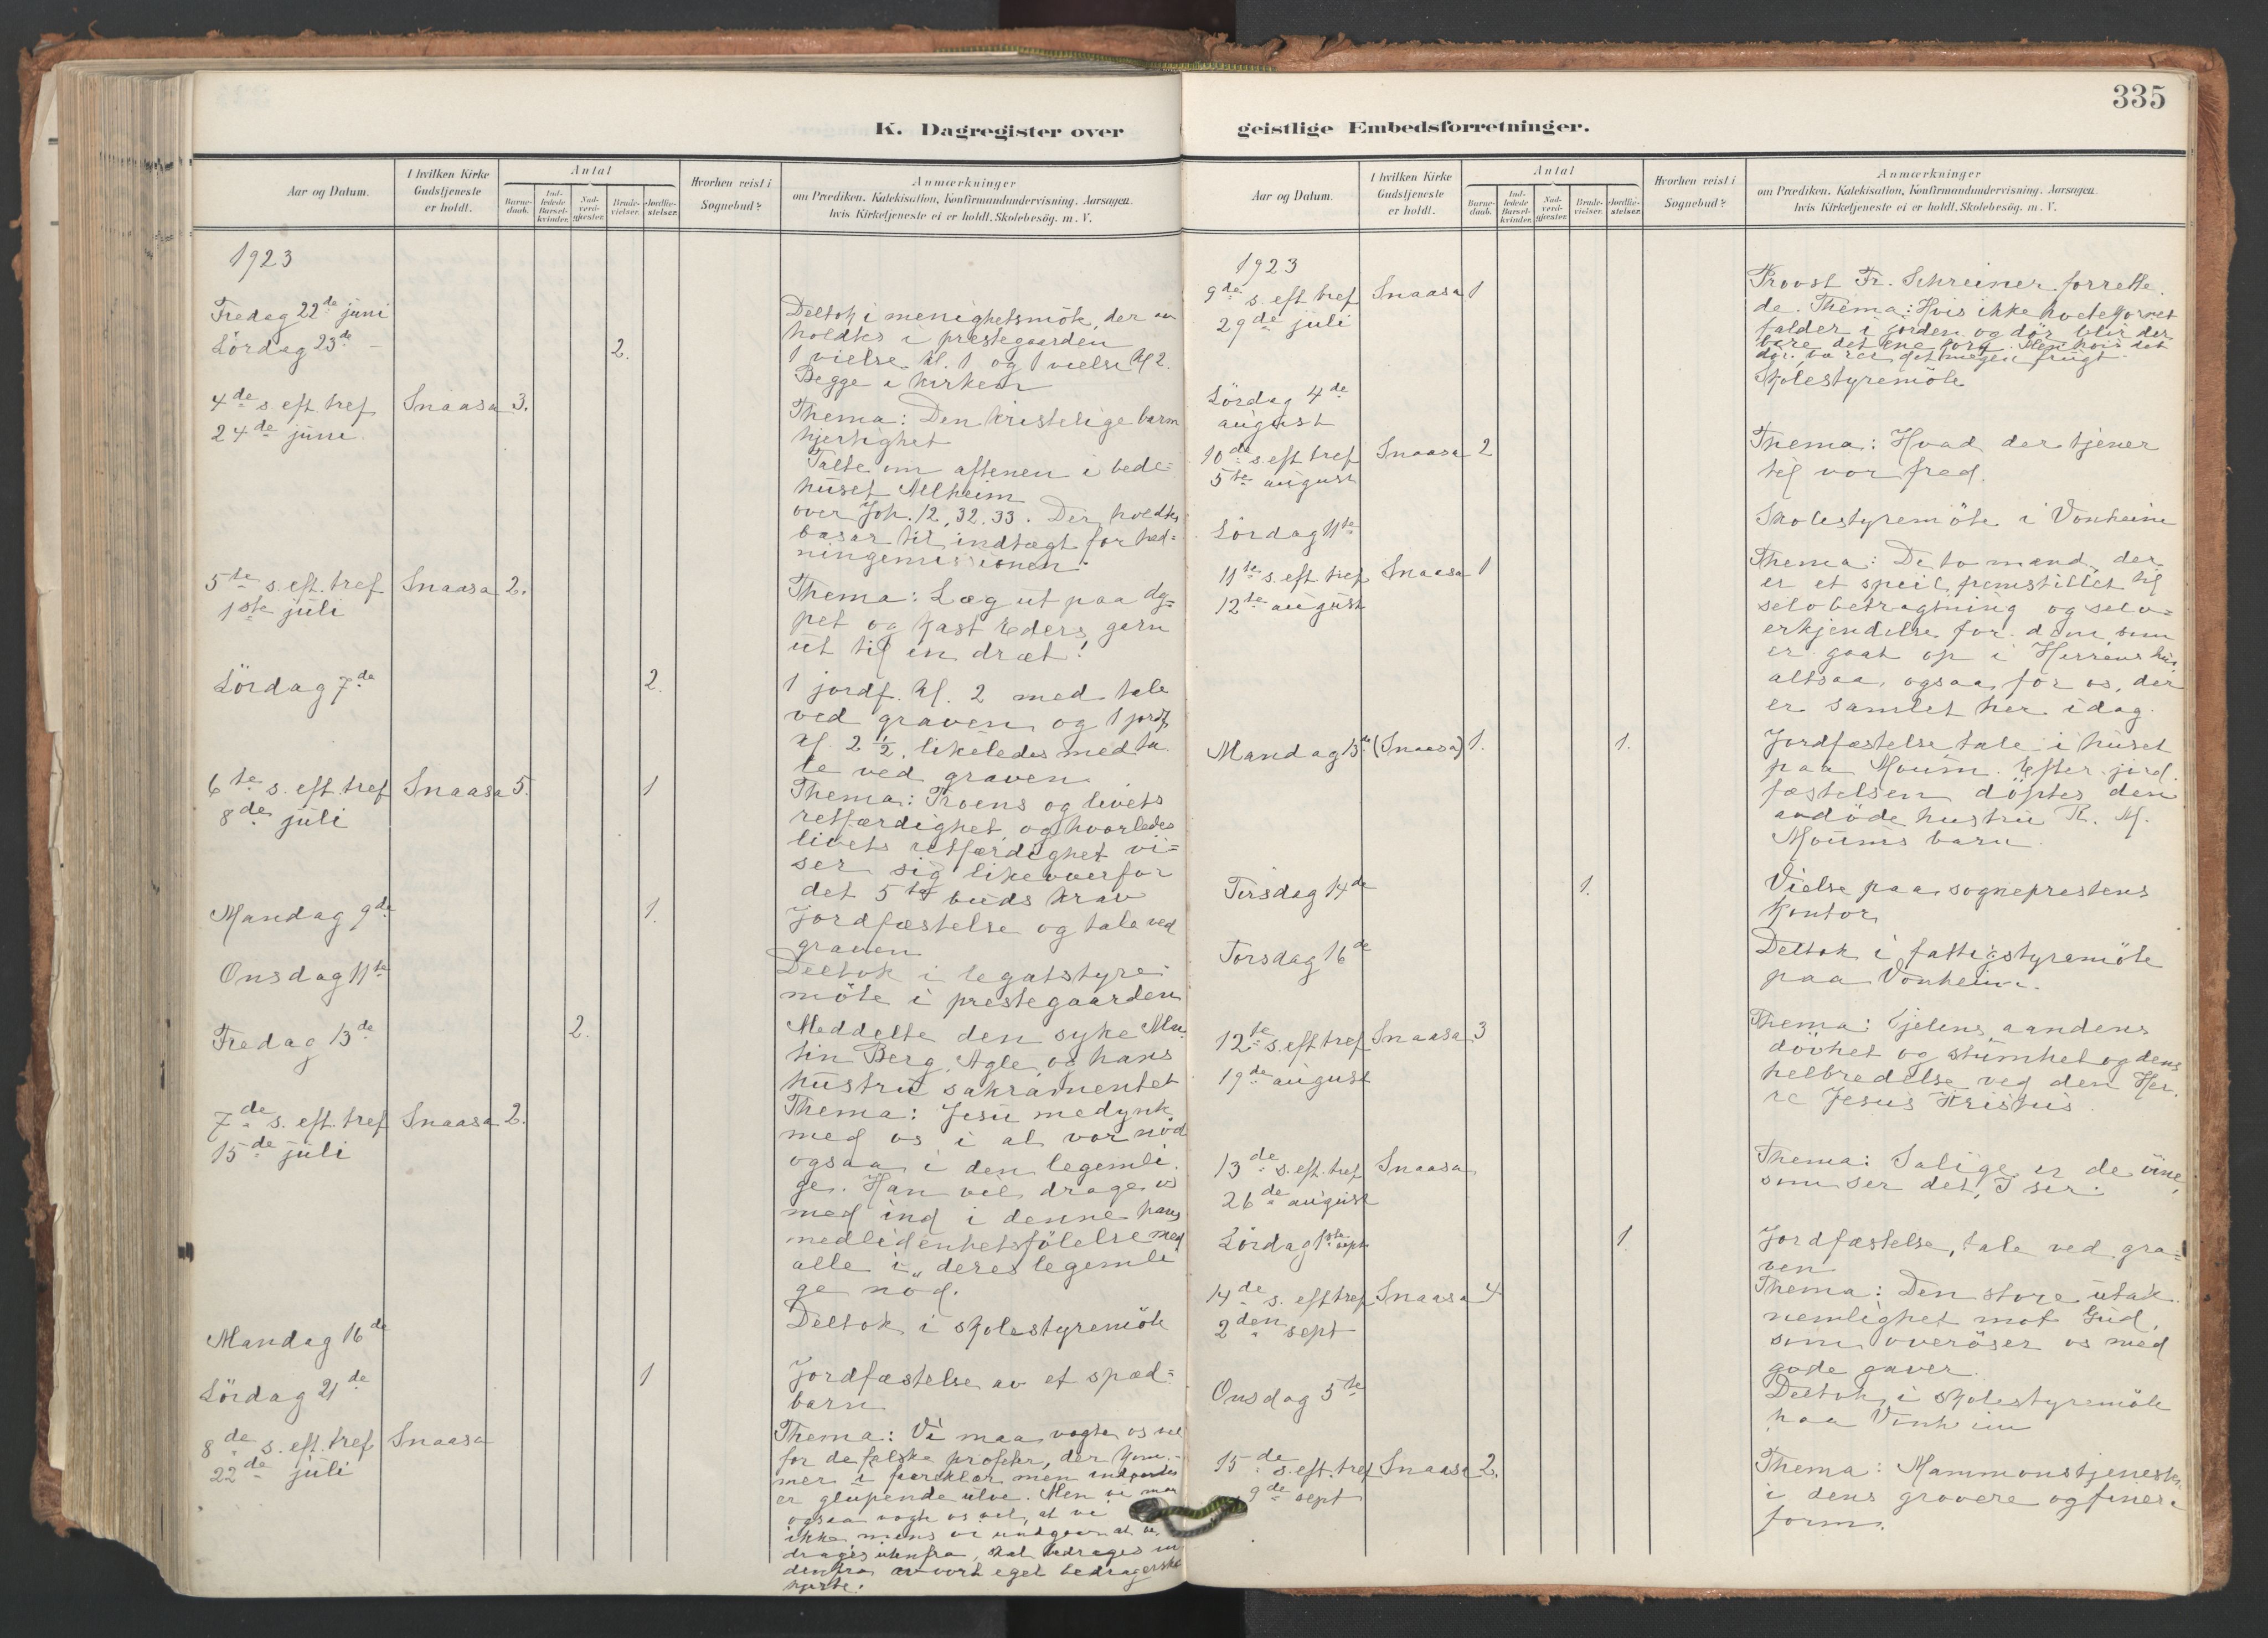 335
K. Dagregister over
geistlige Embedsforretninger.
Aar og Datum.
I hvilken Kirke
Gudstjeneste
er holdt.
Antal
Barne-
daab.
Ind-
ledede
Barsel-
kvinder.
Nad-
verd-
gjester.
Brude-
vielser.
Jordfæ-
stelser.
Hvorhen reist i
Sognebud?
Anmærkninger
om Prædiken, Katekisation, Konfirmandundervisning, Aarsagen
hvis Kirketjeneste ei er holdt, Skolebesøg. m. V.
1923
Fredag 22de juni
Deltok i menighetsmöte, der av
holdtes i prestegaarden
Lördag 23de –
2.
1 vielse kl. 1 og 1 vielse kl 2.
Begge i kirken
4de s. eft. tref
Snaasa
3.
24de juni.
Thema: Den kristelige barm
hjertighet
Talte om aftenen i bede=
huset
over Joh. 12, 32. 33. Der holdtes
basar til indtægt for hed=
ningemissionen.
5te s. eft. tref
Snaasa
2.
1ste juli
Thema: Læg ut paa dy=
pet og kast Eders garn
ut til en dræt!
Lördag 7de
2.
1 jordf. kl. 2 med tale
ved graven og 1 jordf
kl. 2 ½, likeledes med ta
le ved graven.
6te s. eft. tref
Snaasa
5.
1
8de juli
Thema: Troens og livets
retfærdighet, og hvorledes
livets retfærdighet vi=
ser sig likeoverfor
det 5te buds krav
Mandag 9de
1.
Jordfæstelse og tale ved
graven
Onsdag 11te
Deltok i legatstyre
möte i prestegaarden
Fredag 13de
2.
Meddelte den syke
tin Berg, Agle, og hans
hustru sakramentet
7de s. eft. tref
Snaasa
2.
15de juli
Thema: Jesu medynk
med os i al vor nöd
ogsaa i den legemli
ge. Han vil drage os
med ind i denne hans
medlidenhetsfölelse med
alle i deres legemli
ge nöd.
Mandag 16de
Deltok i skolestyremöte
Lördag 21de
1
Jordfæstelse av et spæd=
barn
8de s. eft. tref
Snaasa
22de juli
Thema: Vi maa vogte os vel
for de falske profeter, der kom-
mer i faareklær men indvortes
er glupende ulve. Men vi maa
ogsaa vogte os vel, at vi
ikke, mens vi undgaar at be
drages utenfra, skal bedrages in
denfra av vort eget bedragerske
hjerte.
Aar og Datum.
I hvilken Kirke
Gudstjeneste
er holdt.
Antal
Barne-
daab.
Ind-
ledede
Barsel-
kvinder.
Nad-
verd-
gjester.
Brude-
vielser.
Jordfæ-
stelser.
Hvorhen reist i
Sognebud?
Anmærkninger
om Prædiken, Katekisation, Konfirmandundervisning, Aarsagen
hvis Kirketjeneste ei er holdt, Skolebesøg. m. V.
1923
9de s. eft tref
Snaasa
1
29de juli
Provst Fr. Schreiner forrette
de. Thema: Hvis ikke hvetekornet
falder i jorden og dör, blir det
bare det ene korn. Men hvis det
dör, bærer det megen frugt.
Lördag 4de
august
Skolestyremöte
10de s. eft tref
Snaasa
2
5te august
Thema: Hvad der tjener
til vor fred.
Lördag 11te
Skolestyremöte i Vonheim
11te s. eft tref
Snaasa
1
12te august
Thema: De to mænd, der
er et speil fremstillet til
selvbetragtning og selv=
erkjendelse for dem, som
er gaat op i Herrens hus,
altsaa ogsaa for os, der
er samlet her idag.
Mandag 13de
(Snaasa)
1.
1.
Jordfæstelse tale i huset
paa Moum. Efter jord.
fæstelsen döptes den
avdöde hustru R. M.
Moums barn
Tirsdag 14de
1.
Vielse paa sogneprestens
kontor
Torsdag 16de
Deltok i fattigstyremöte
paa Vonheim.
12te s. eft tref
Snaasa
3
19de august
Thema: Sjelens, aandens
dövhet og stumhet og dens
helbredelse ved den Her.
re Jesus Kristus.
13de s. eft. tref
Snaasa
26de august
Thema: Salige er de öine,
som ser det, I ser.
Lördag 1ste sept
1.
Jordfæstelse, tale ved gra=
ven
14de s. eft tref
Snaasa
4
2den sept
Thema: Den store utak
nemlighet mot Gud,
som overöser os med
gode gaver.
Onsdag 5te
Deltok i skolestyremöte
paa Vonheim
15de s. eft. tref
Snaasa
2.
9de sept
Thema: Mammonstjeneste
i dens grovere og finere
form.